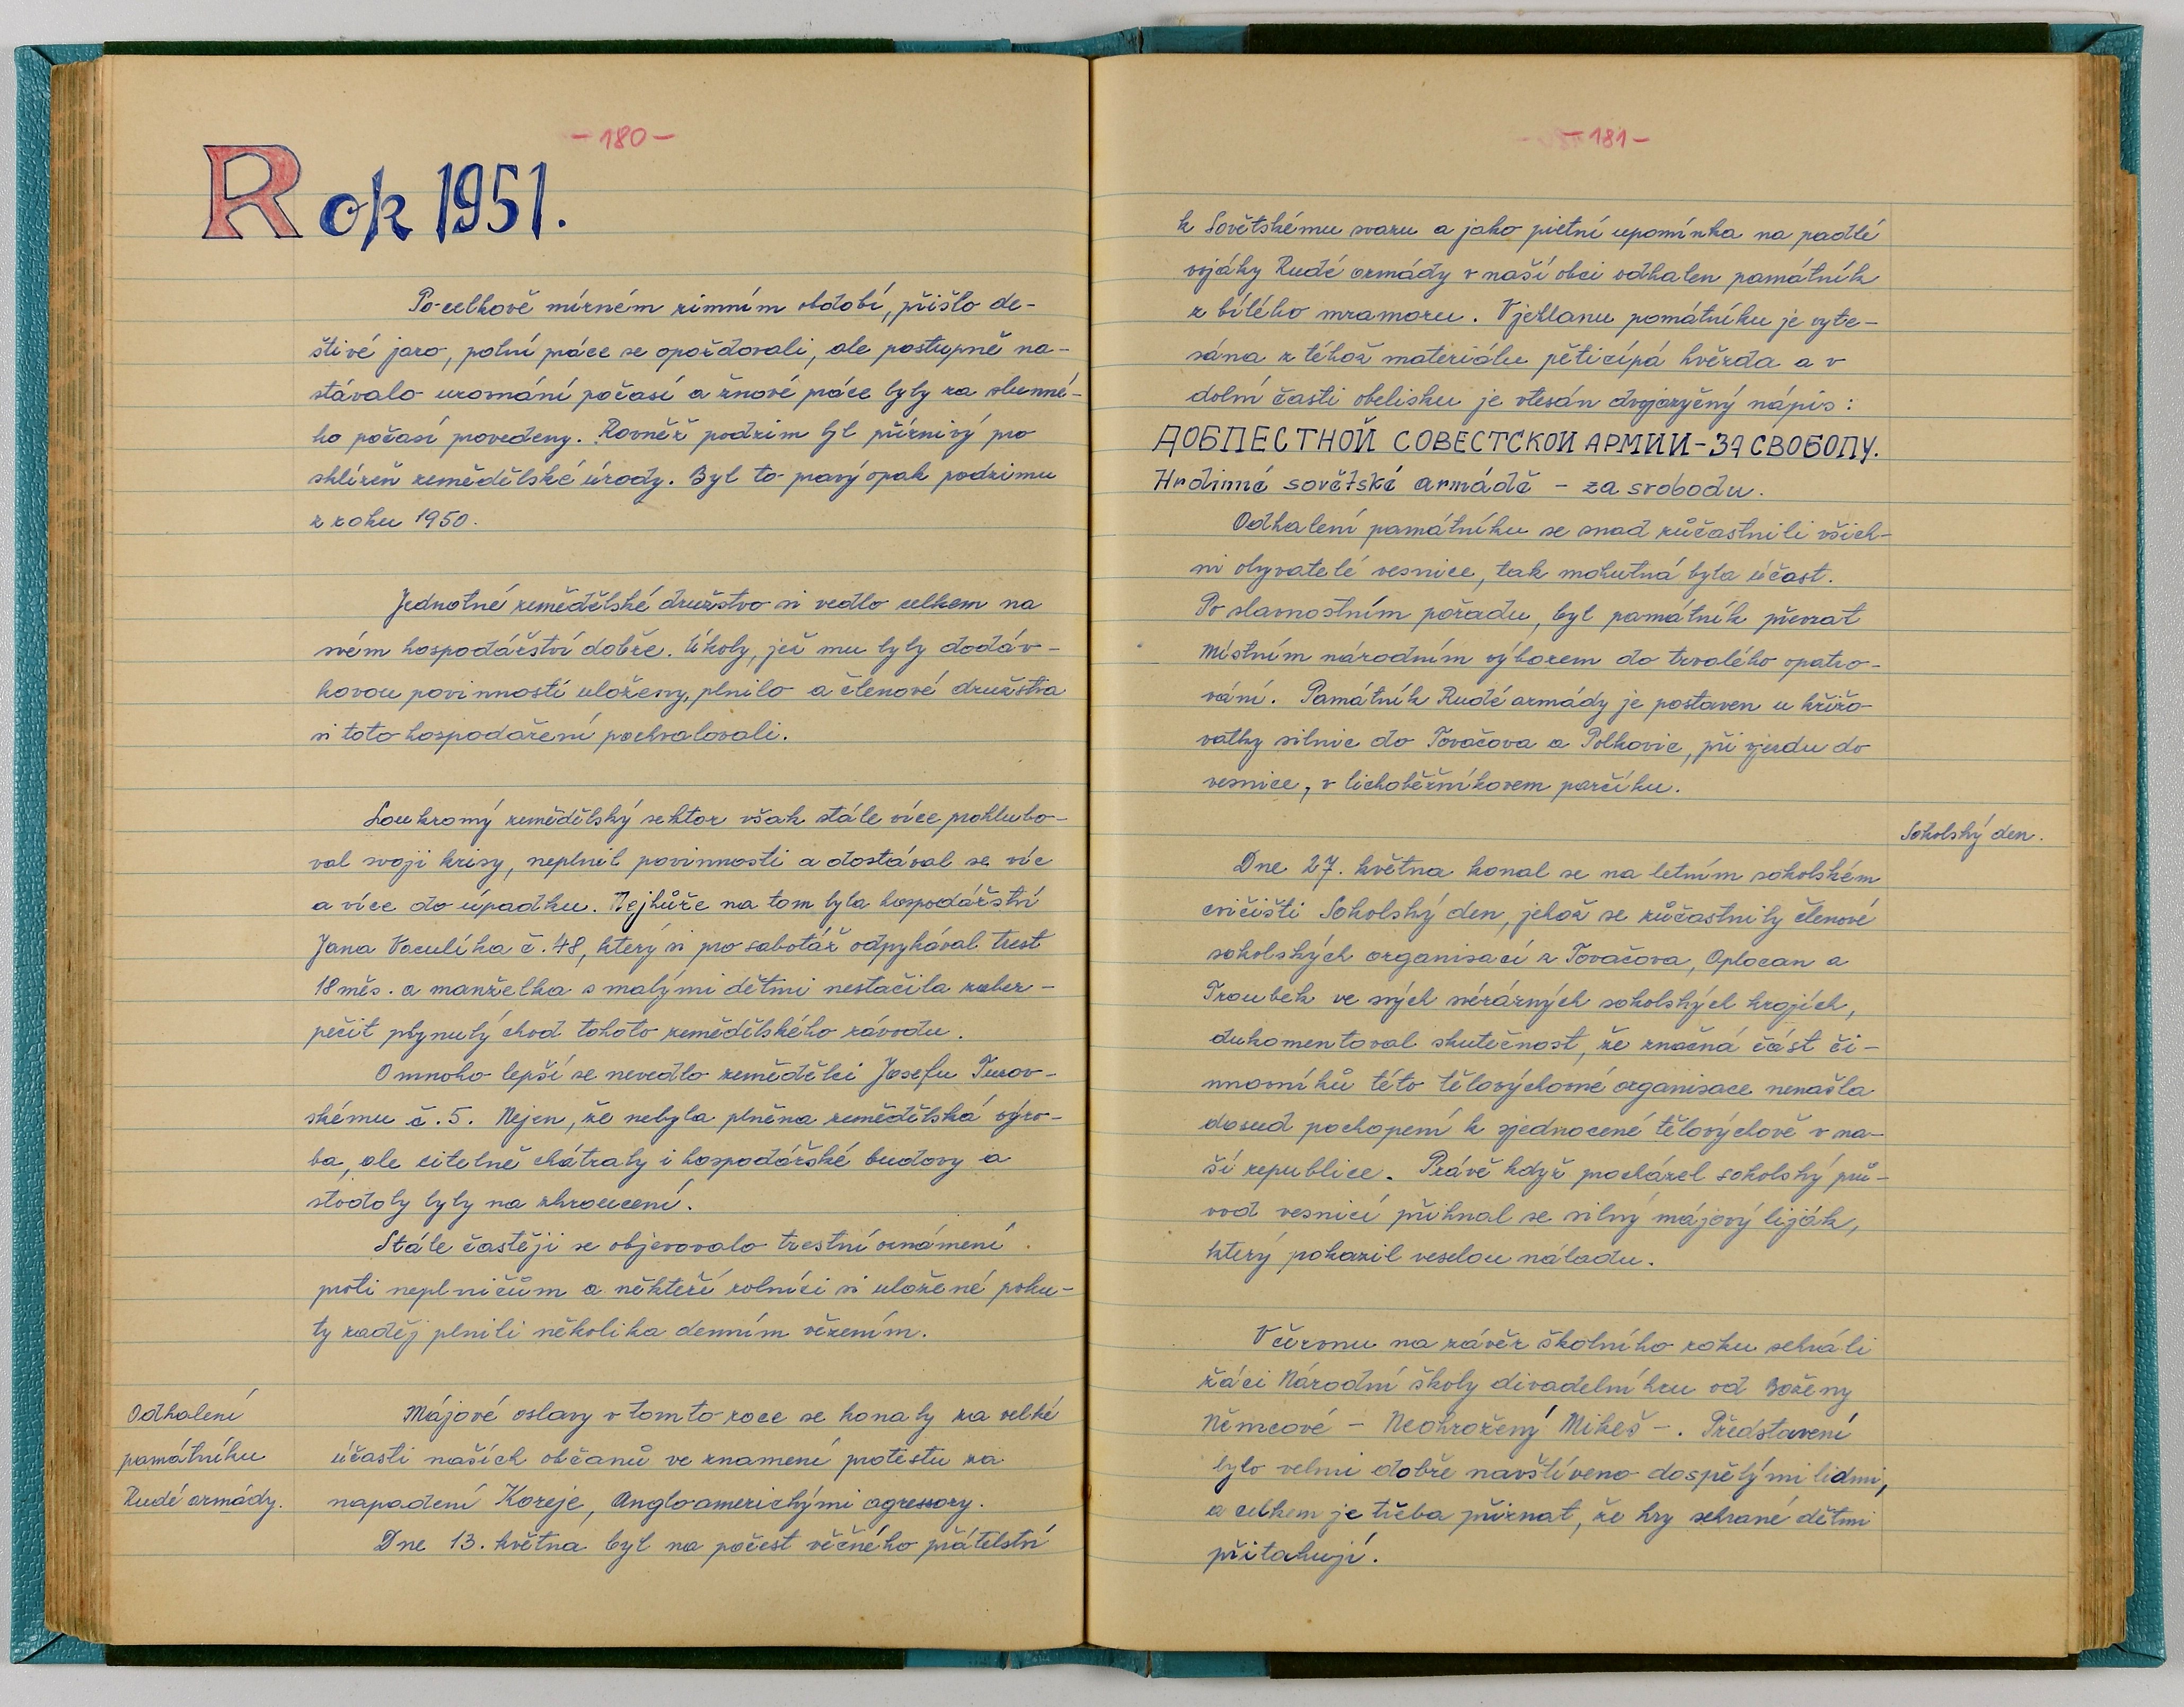 - 180 -
Rok 1951.
Po celkově mírném zimním období, přišlo de-
štivé jaro, polní práce se opožďovali, ale postupně na-
stávalo urovnání počasí a žnové práce byly za slunné-
ho počasí provedeny. Rovněž podzim byl příznivý pro
sklízeň zemědělské úrody. Byl to pravý opak podzimu
z roku 1950.
Jednotné zemědělské družstvo si vedlo celkem na
svém hospodářství dobře. Úkoly, jež mu byly dodáv-
kovou povinností uloženy, plnilo a členové družstva
si toto hospodaření pochvalovali.
Soukromý zemědělský sektor však stále více prohlubo-
val svoji krisy, neplnil povinnosti a dostával se víc
a více do úpadku. Nejhůře na tom byla hospodářství
Jana Vaculíka č. 48, který si pro sabotáž odpykával trest
18 měs. a manželka s malými dětmi nestačila zabez-
pečit plynulý chod tohoto zemědělského závodu.
O mnoho lepší se nevedlo zemědělci Josefu Turov-
skému č. 5. Nejen, že nebyla plněna zemědělská výro-
ba, ale citelně chátraly i hospodářské budovy a
stodoly byly na zhroucení.
Stále častěji se objevovalo trestní oznámení
proti neplničům a někteří rolníci si uložené poku-
ty raději plnili několika denním vězením.
Odhalení
památníku
Rudé armády.
Májové oslavy v tomto roce se konaly za velké
účasti našich občanů ve znamení protestu za
napadení Koreje, Angloamerickými agressory.
Dne 13. května byl na počest věčného přátelství
- 181 -
k Sovětskému svazu a jako pietní upomínka na padlé
vojáky Rudé armády v naší obci odhalen památník
z bílého mramoru. V jehlanu památníku je vyte-
sána z téhož materiálu pěticípá hvězda a v
dolní časti obelisku je vtesán dvojazyčný nápis:
ДОБПЕСТНОЙ СОВЕСТСКОИ АРМИИ-ЗА СВОБОПУ.
Hrdinné sovětské armádě - za svobodu.
Odhalení památníku se snad zůčastnili všich-
ni obyvatelé vesnice, tak mohutná byla účast.
Po slavnostním pořadu, byl památník převzat
Místním národním výborem do trvalého opatro-
vání. Památník Rudé armády je postaven u křižo-
vatky silnic do Tovačova a Polkovic, při vjezdu do
vesnice, v lichoběžníkovem parčíku.
Sokolský den.
Dne 27. května konal se na letním sokolském
cvičišti Sokolský den, jehož se zůčastnily členové
sokolských organisací z Tovačova, Oplocan a
Troubek ve svých svérázných sokolských krojích,
dukomentoval skutečnost, že značná část či-
nnovníků této tělovýchovné organisace nenašla
dosud pochopení k sjednocené tělovýchově v na-
ší republice. Právě když procházel sokolský prů-
vod vesnicí přihnal se silný májový liják,
který pokazil veselou náladu.
V červnu na závěr školního roku sehráli
žáci Národní školy divadelní hru od Boženy
Němcové - Neohrožený Mikeš -. Představení
bylo velmi dobře navštíveno dospělými lidmi,
a celkem je třeba přiznat, že hry sehrané dětmi
přitahují.